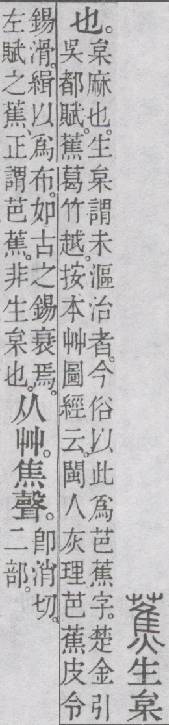 蕉生枲
也。
枲麻也。生枲謂未漚治者。今俗以此爲芭蕉字。楚金引
吳都賦。蕉葛竹越。按本艸圖經云。閩人灰理芭蕉皮令
錫滑。緝以爲布。如古之錫衰焉。
左賦之蕉、正謂芭蕉。非生枲也。
从艸。焦聲。
卽消切。
二部。